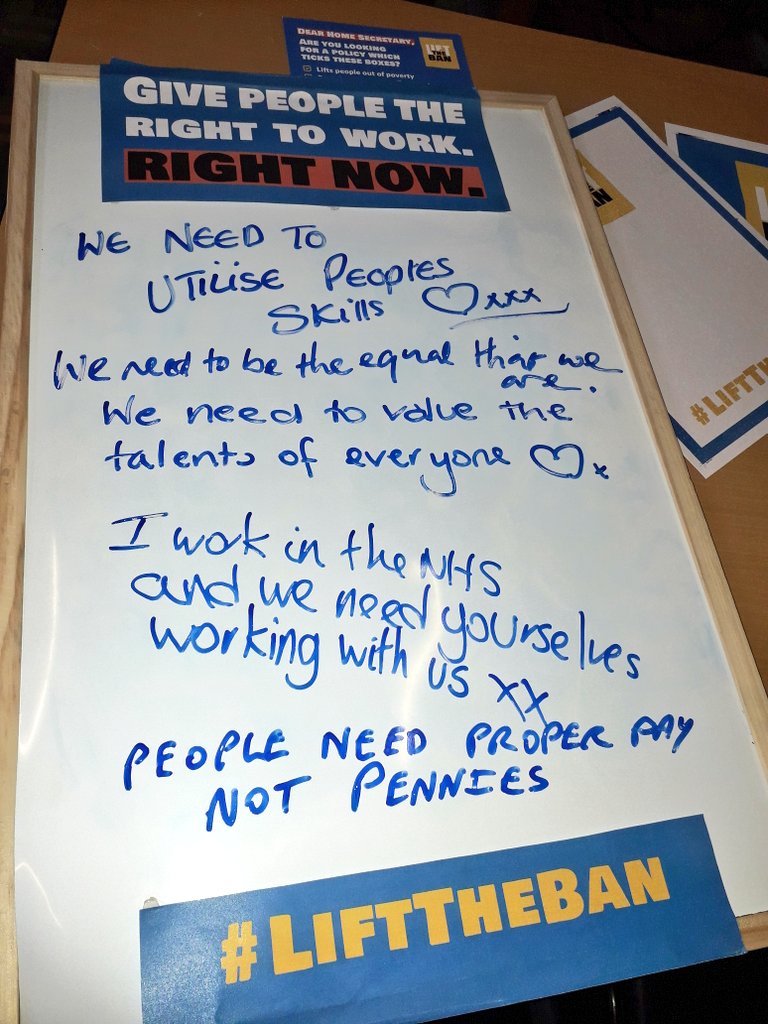 DEAR HOME SECRETARY,
ARE YOU LOOKING
FOR A POLICY WHICH
TICKS THESE BOXES?
Lifts people out of poverty
LIFT
THE
BAN
GIVE PEOPLE THE
RIGHT TO WORK.
RIGHT NOW.
WE NEED TO
UTILISE PEOPLES
SKILLS xxx
We need to be the equal that we
are.
We need to value the
talents of everyone x
I work in the NHS
and we need yourselves
working with us xx
PEOPLE NEED PROPER PAY
NOT PENNIES
#LIFTTHEBAN
#LIFTTHE